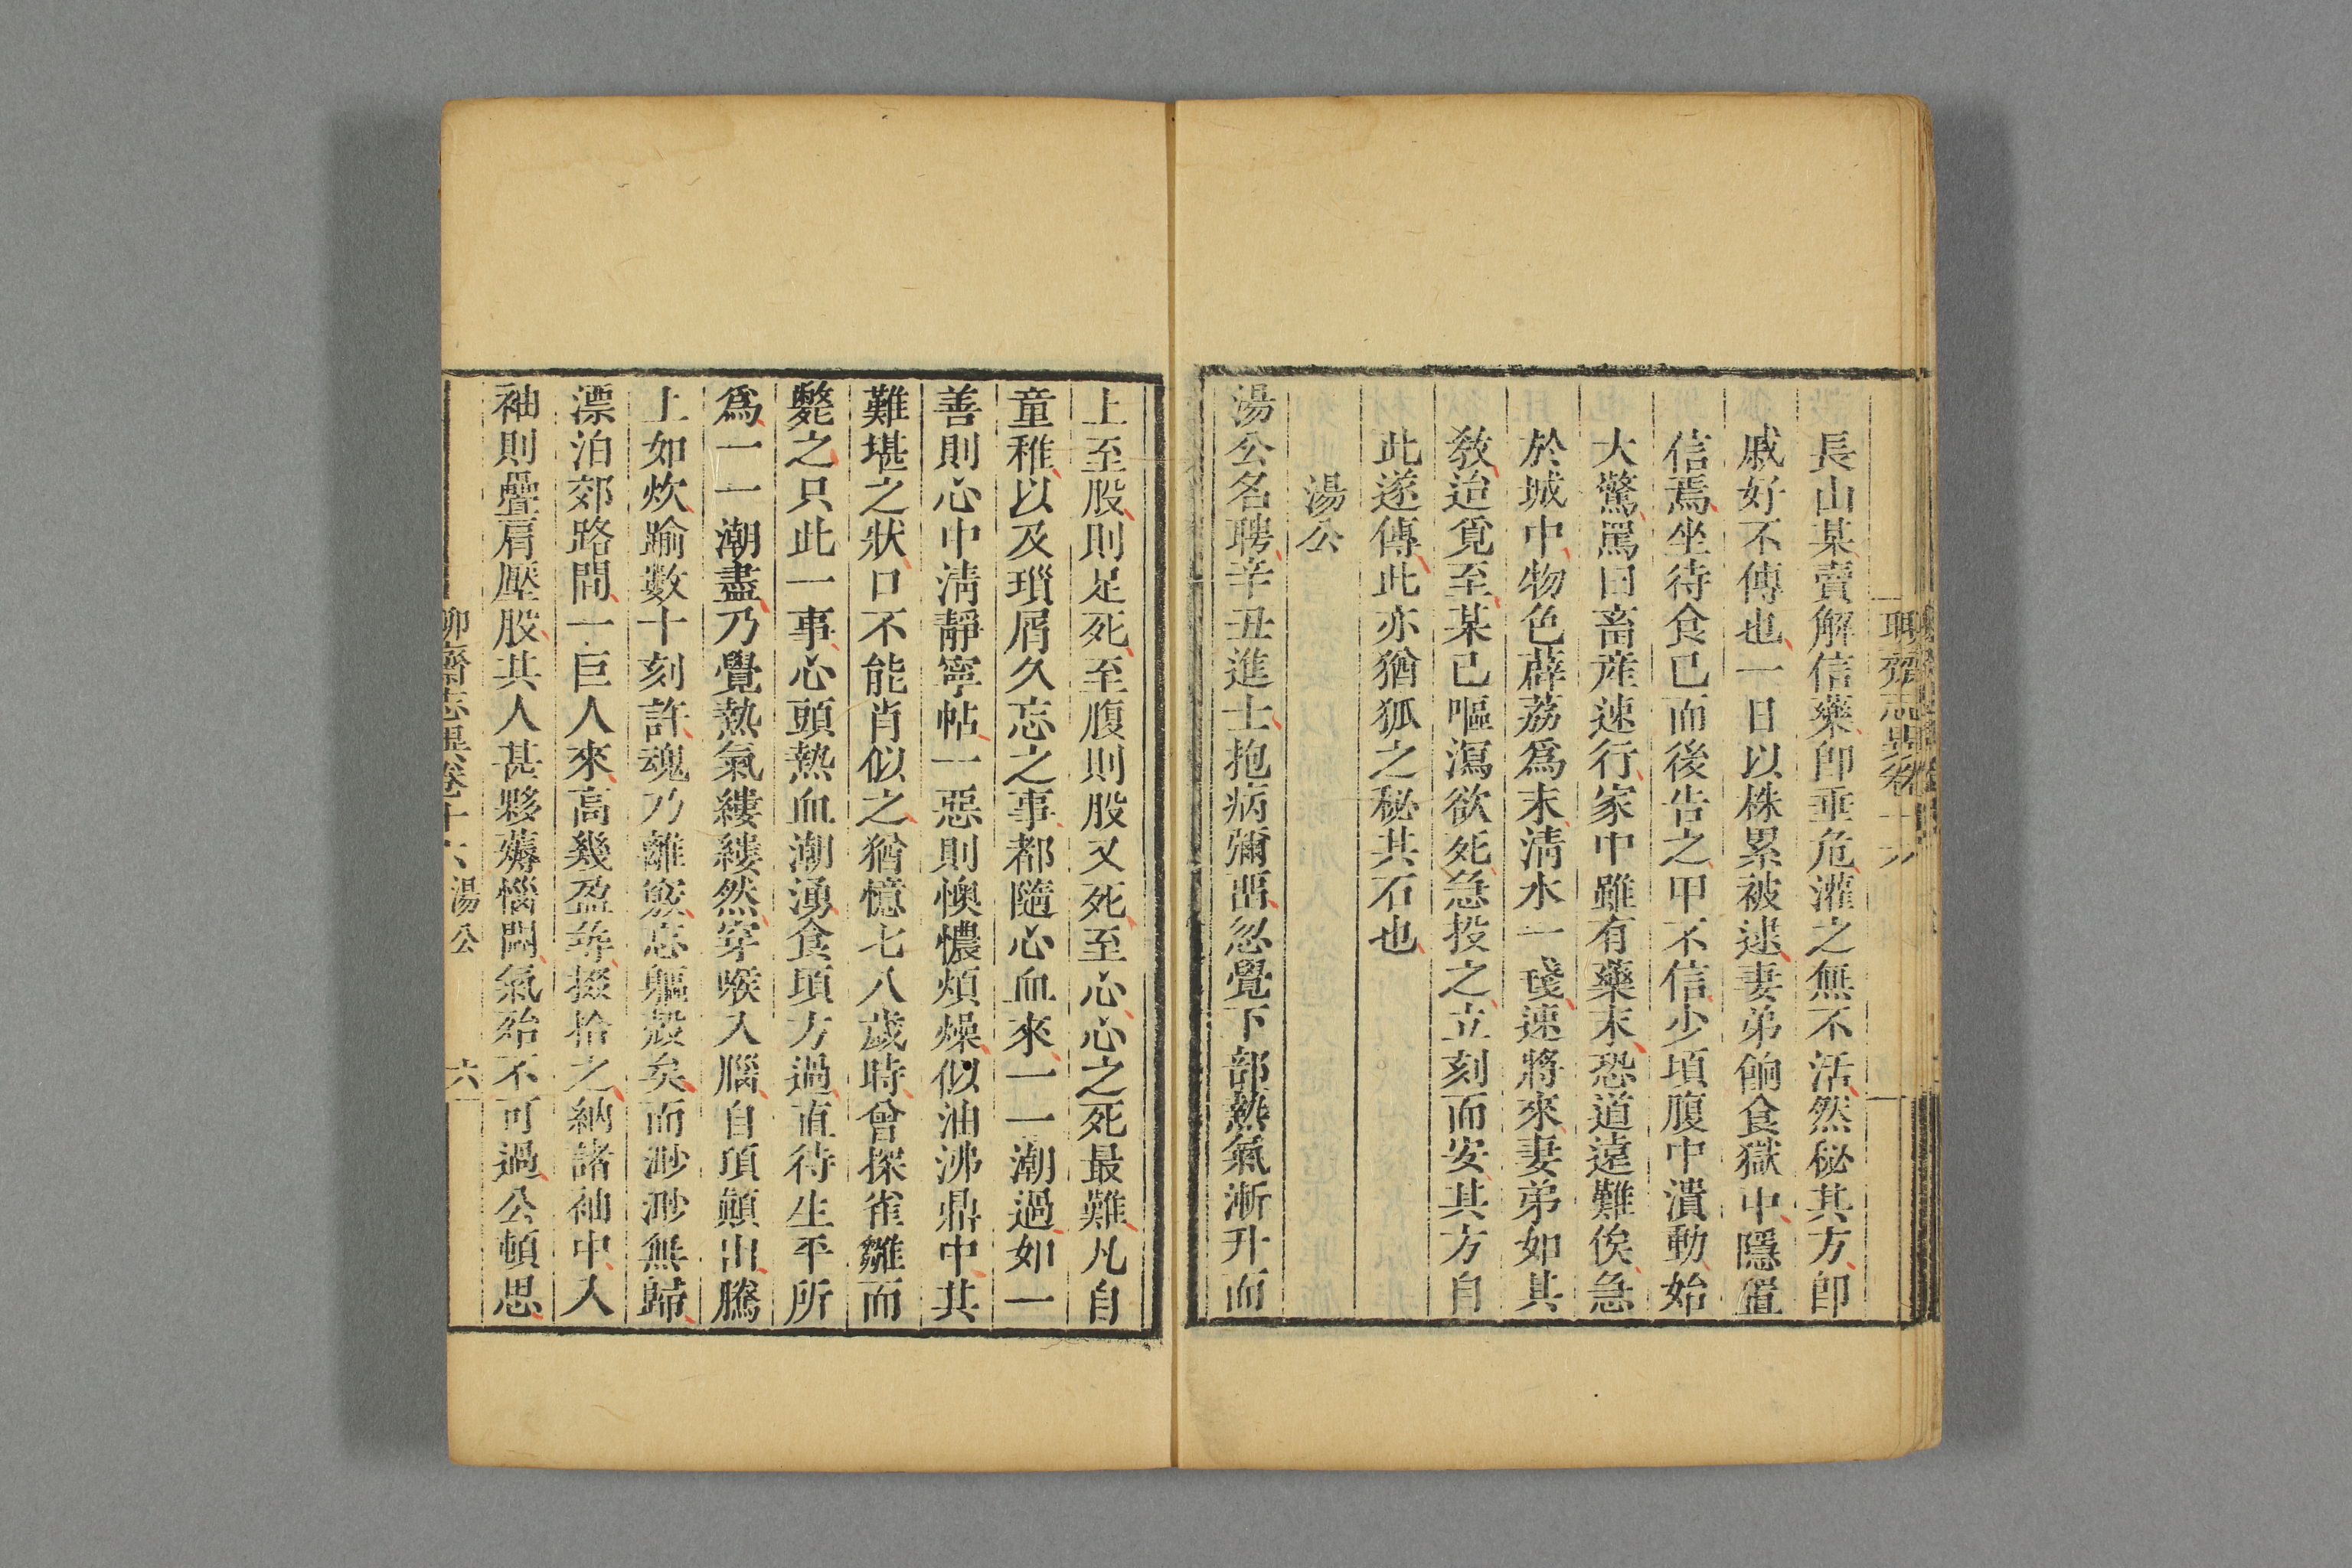 長山某賣解信藥卽垂危灌之無不活然秘其方卽
戚好不傳也一日以株累被逮妻弟餉食獄中隱置
信焉坐待食已而後告之甲不信少頃腹中潰動始
大驚罵曰畜産速行家中雖有藥末恐道遠難俟急
於城中物色薜荔爲末清水一琖速將來妻弟如其
敎迨覓至某已嘔瀉欲死急投之立刻而安其方自
此遂傳此亦猶狐之秘其石也
湯公
湯公名聘辛丑進士抱病彌畱忽覺下部熱氣漸升而
上至股則足死至腹則股又死至心心之死最難凡自
童稚以及瑣屑久忘之事都隨心血來一一潮過如一
善則心中淸靜寧帖一惡則懊憹煩燥似油沸鼎中其
難堪之狀口不能肖似之猶憶七八歲時曾探雀雛而
斃之只此一事心頭熱血潮湧食頃方過直待生平所
爲一一潮盡乃覺熱氣縷縷然穿喉入腦自頂顚出騰
上如炊踰數十刻許魂乃離竅忘軀殼矣而渺渺無歸
漂泊郊路間一巨人來高幾盈尋掇拾之納諸袖中入
袖則疊肩壓股其人甚夥薅惱悶氣殆不可過公頓思
聊齋志異卷十六 湯公 六